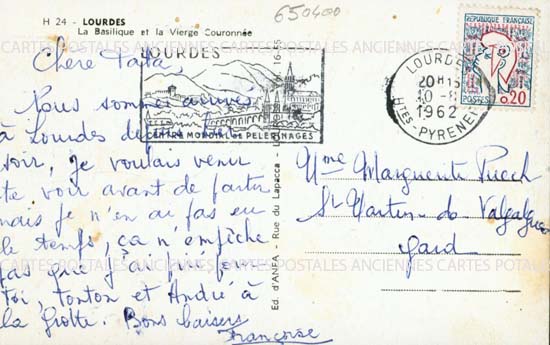 H 24 - LOURDES
La Basilique et la Vierge Couronnée
650400
Chère Tata,
Nous sommes arrivés
à Lourdes depuis hier
soir, je voulais venir
te voir avant de partir
mais je n'en ai pas eu
le temps, ça n'empêche
pas que j'ai prié pour
toi, tonton et André à
la Grotte. Bons baisers
Françoise
LOURDES
CENTRE MONDIAL DE PELERINAGES
Ed. d'ANFA - Rue du Lapacca - 16-55
LOURDES
20H15
10-8
1962
HTES-PYRENEES
REPUBLIQUE FRANÇAISE
POSTES 0,20
Mme Marguerite Puech
St Martin de Valgalgues
Gard
CARTES POSTALES ANCIENNES CARTES POSTALES ANCIENNES CARTES POSTALES